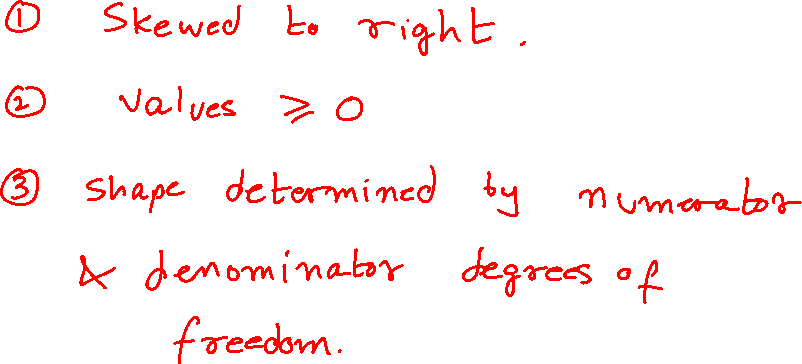 ① Skewed to right.
② Values ⩾ 0
③ Shape determined by numerator
& denominator degrees of
freedom.